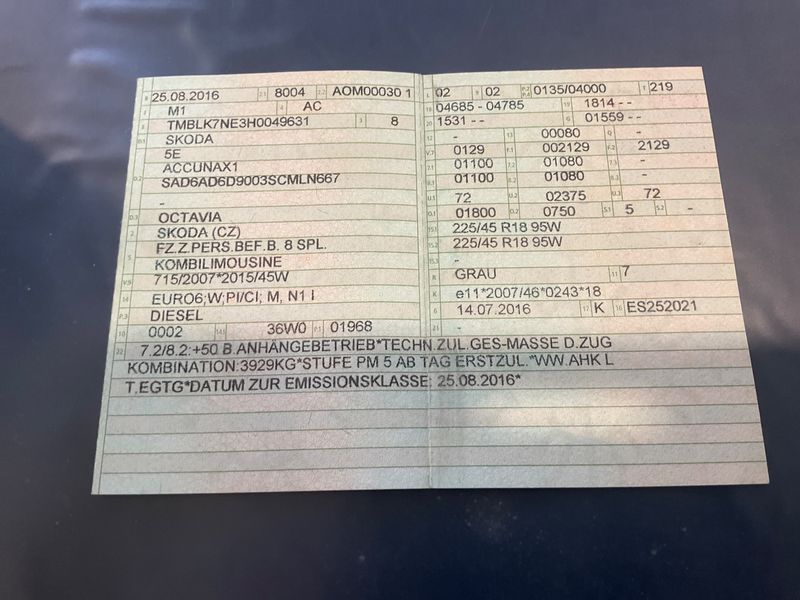 B 25.08.2016 2.1 8004 2.2 AOM00030 1
J M1 4 AC
E TMBLK7NE3H0049631 3 8
D.1 SKODA
5E
D.2 ACCUNAX1
SAD6AD6D9003SCMLN667
-
D.3 OCTAVIA
2 SKODA (CZ)
5 FZ.Z.PERS.BEF.B. 8 SPL.
KOMBILIMOUSINE
V.9 715/2007*2015/45W
14 EURO6;W;PI/CI; M, N1 I
P.3 DIESEL
10 0002 14.1 36W0 P.1 01968
L 02 9 02 P.2 P.4 0135/04000 T 219
18 04685 - 04785 19 1814 - -
20 1531 - - G 01559 - -
12 - 13 00080 Q -
V.7 0129 F.1 002129 F.2 2129
7.1 01100 7.2 01080 7.3 -
8.1 01100 8.2 01080 8.3 -
U.1 72 U.2 02375 U.3 72
O.1 01800 O.2 0750 S.1 5 S.2 -
15.1 225/45 R18 95W
15.2 225/45 R18 95W
15.3 -
R GRAU 11 7
K e11*2007/46*0243*18
6 14.07.2016 17 K 16 ES252021
21 -
22 7.2/8.2:+50 B.ANHÄNGEBETRIEB*TECHN.ZUL.GES-MASSE D.ZUG
KOMBINATION:3929KG*STUFE PM 5 AB TAG ERSTZUL.*WW.AHK L
T.EGTG*DATUM ZUR EMISSIONSKLASSE: 25.08.2016*